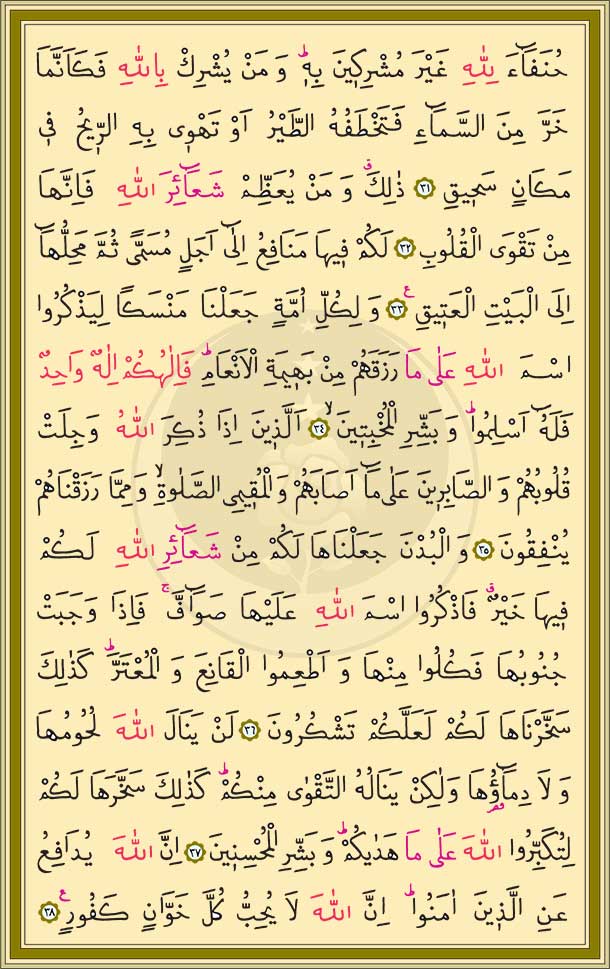 حُنَفَٓاءَ لِلّٰهِ غَيْرَ مُشْرِك۪ينَ بِه۪ۜ وَ مَنْ يُشْرِكْ بِاللّٰهِ فَكَاَنَّمَا
خَرَّ مِنَ السَّمَٓاءِ فَتَخْطَفُهُ الطَّيْرُ اَوْ تَهْو۪ى بِهِ الرّ۪يحُ ف۪ى
مَكَانٍ سَح۪يقٍ ﴿٣١﴾ ذٰلِكَۗ وَ مَنْ يُعَظِّمْ شَعَٓائِرَ اللّٰهِ فَاِنَّهَا
مِنْ تَقْوَى الْقُلُوبِ ﴿٣٢﴾ لَكُمْ ف۪يهَا مَنَافِعُ اِلٰٓى اَجَلٍ مُسَمًّى ثُمَّ مَحِلُّهَٓا
اِلَى الْبَيْتِ الْعَت۪يقِ۟ ﴿٣٣﴾ وَ لِكُلِّ اُمَّةٍ جَعَلْنَا مَنْسَكًا لِيَذْكُرُوا
اسْمَ اللّٰهِ عَلٰى مَا رَزَقَهُمْ مِنْ بَه۪يمَةِ الْاَنْعَامِۜ فَاِلٰهُكُمْ اِلٰهٌ وَاحِدٌ
فَلَهُٓ اَسْلِمُواۜ وَ بَشِّرِ الْمُخْبِت۪ينَۙ ﴿٣٤﴾ اَلَّذ۪ينَ اِذَا ذُكِرَ اللّٰهُ وَجِلَتْ
قُلُوبُهُمْ وَ الصَّابِر۪ينَ عَلٰى مَٓا اَصَابَهُمْ وَالْمُق۪يمِى الصَّلٰوةِۙ وَ مِمَّا رَزَقْنَاهُمْ
يُنْفِقُونَ ﴿٣٥﴾ وَ الْبُدْنَ جَعَلْنَاهَا لَكُمْ مِنْ شَعَٓائِرِ اللّٰهِ لَكُمْ
ف۪يهَا خَيْرٌۗ فَاذْكُرُوا اسْمَ اللّٰهِ عَلَيْهَا صَوَٓافَّۚ فَاِذَا وَجَبَتْ
جُنُوبُهَا فَكُلُوا مِنْهَا وَ اَطْعِمُوا الْقَانِعَ وَ الْمُعْتَرَّۜ كَذٰلِكَ
سَخَّرْنَاهَا لَكُمْ لَعَلَّكُمْ تَشْكُرُونَ ﴿٣٦﴾ لَنْ يَنَالَ اللّٰهَ لُحُومُهَا
وَ لَا دِمَٓاؤُ۬هَا وَلٰكِنْ يَنَالُهُ التَّقْوٰى مِنْكُمْۜ كَذٰلِكَ سَخَّرَهَا لَكُمْ
لِتُكَبِّرُوا اللّٰهَ عَلٰى مَا هَدٰيكُمْۜ وَ بَشِّرِ الْمُحْسِن۪ينَ ﴿٣٧﴾ اِنَّ اللّٰهَ يُدَافِعُ
عَنِ الَّذ۪ينَ اٰمَنُواۜ اِنَّ اللّٰهَ لَا يُحِبُّ كُلَّ خَوَّانٍ كَفُورٍ۟ ﴿٣٨﴾